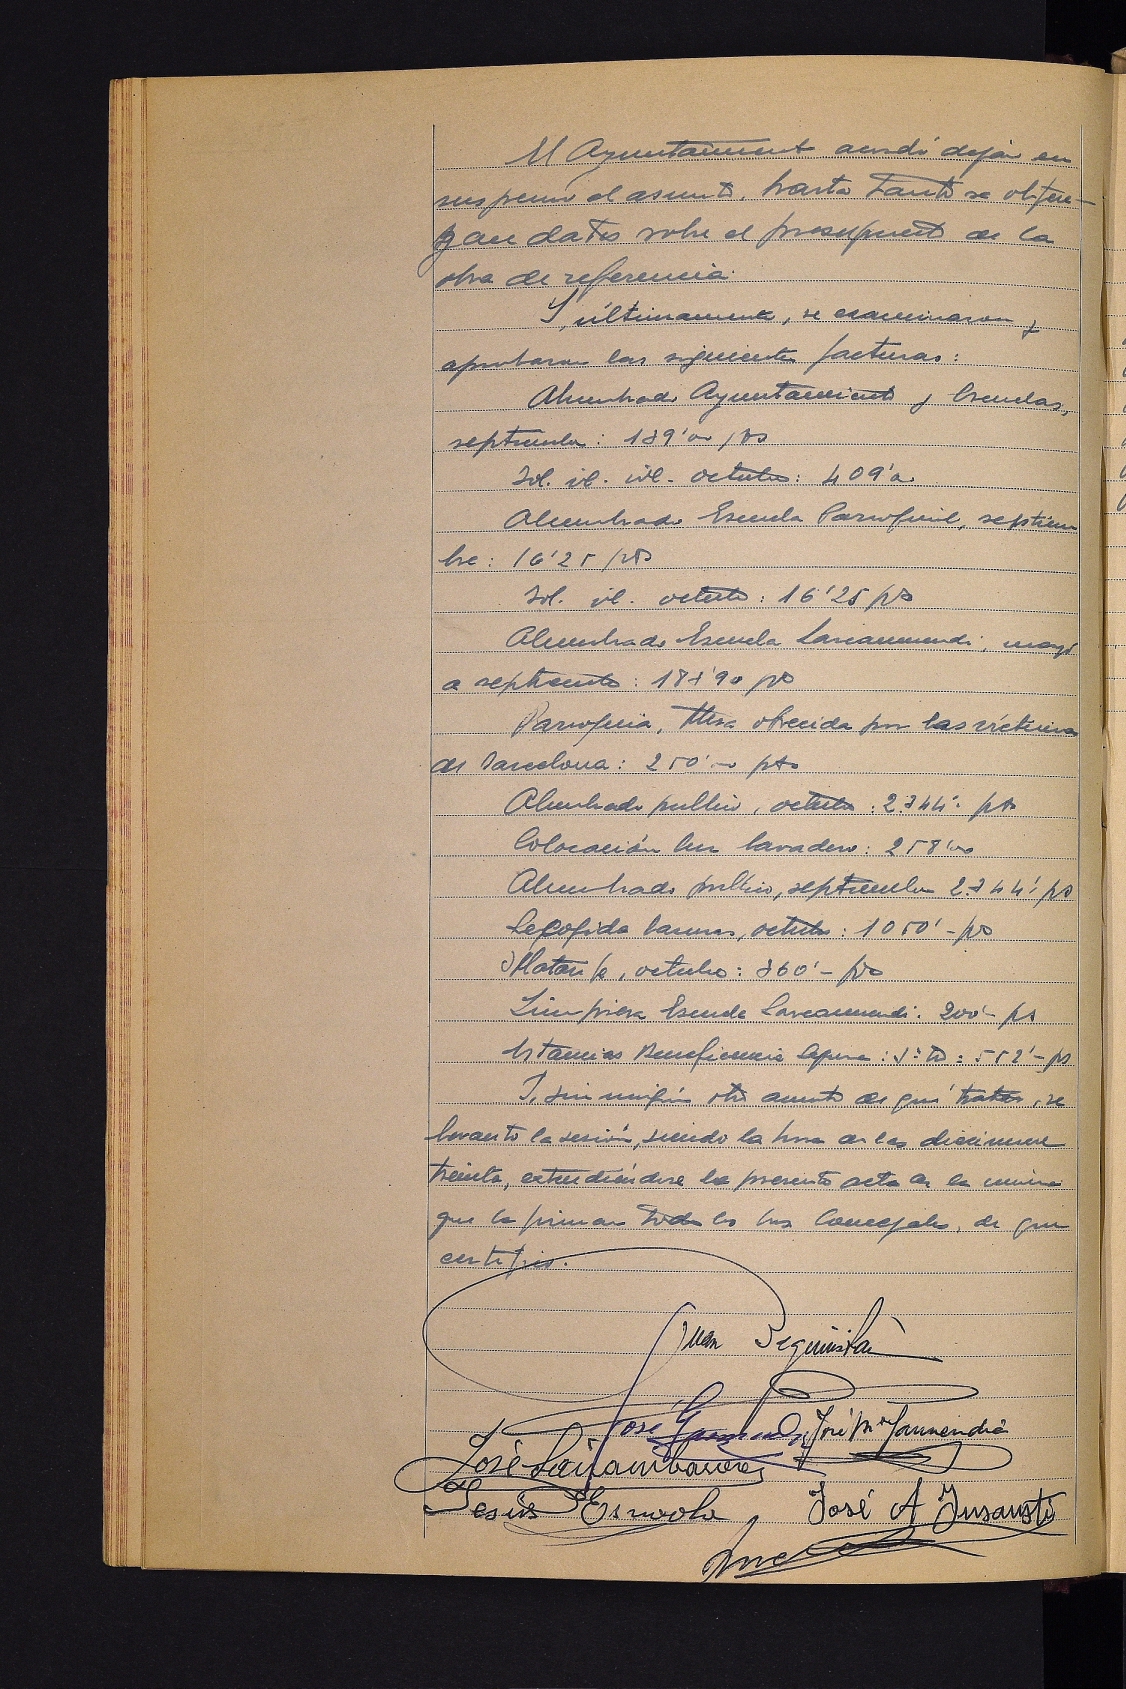 El Ayuntamiento acordó dejar en
suspenso el asunto, hasta tanto se obten-
gan datos sobre el presupuesto de la
obra de referencia.
Y, últimamente, se examinaron y
aprobaron las siguientes facturas:
Alumbrado Ayuntamiento y Escuelas,
septiembre: pts
Id. id. id. octubre: 409'
Alumbrado Escuela Parroquial, septiem
bre: 16'25 pts
Id. id. octubre: 16'25 pts
Alumbrado Escuela Larramendi, mayo
a septiembre: pts
Parroquia, Misa ofrecida por las víctimas
de Barcelona: 250'- pts
Alumbrado público, octubre: 2.744'- pts
Colocación luz lavadero: 258'
Alumbrado público, septiembre 2.744'- pts
Recogida basuras, octubre: 1050'- pts
Matarife, octubre: 360'- pts
Limpieza Escuela Larramendi: 200'- pts
Estancias Beneficencia : 552'- pts
Y, sin ningún otro asunto de que tratar, se
levantó la sesión, siendo la hora de las diecinueve
treinta, extendiéndose la presente acta de la misma
que la firman todos los Sres Concejales, de que
certifico.
Juan Beguiristain
José José Mª Garmendia
José
Jesús Esnaola José A Insausti